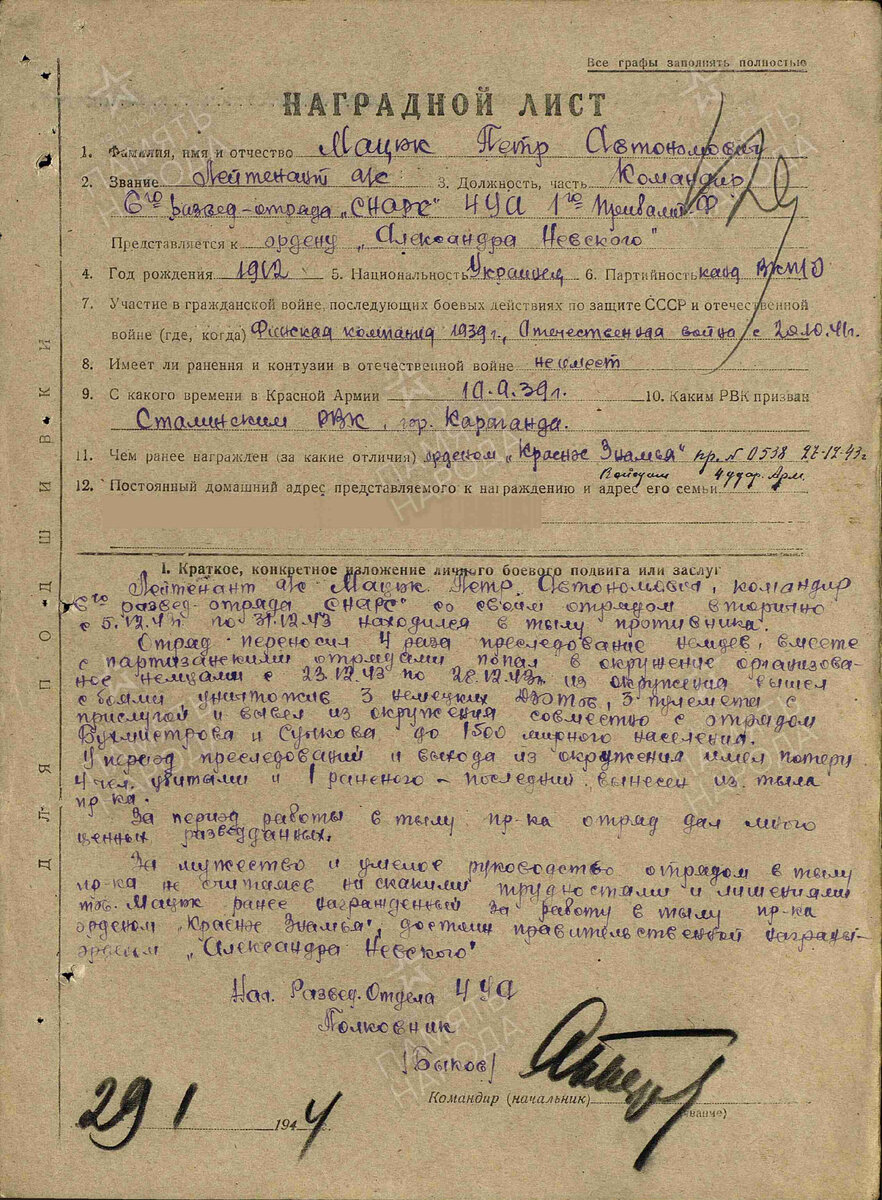 Все графы заполнять полностью
НАГРАДНОЙ ЛИСТ
1. Фамилия, имя и отчество Мацюк Петр Автономович
2. Звание Лейтенант а/с 3. Должность, часть Командир
6го развед-отряда „СНАРС" 4УА 1го Прибалт. Ф.
Представляется к ордену „Александра Невского"
4. Год рождения 1912 5. Национальность Украинец 6. Партийность канд ВКП/б
7. Участие в гражданской войне, последующих боевых действиях по защите СССР и отечественной
войне (где, когда) Финская компания 1939 г., Отечественная война с 20.10.41г.
8. Имеет ли ранения и контузии в отечественной войне не имеет
9. С какого времени в Красной Армии 10.9.39г. 10. Каким РВК призван
Сталинским РВК, гор. Караганда.
11. Чем ранее награжден (за какие отличия) орденом „Красное Знамья" пр. N 0538 27-12-43г
Войскам 4 удар. Арм.
12. Постоянный домашний адрес представляемого к награждению и адрес его семьи
I. Краткое, конкретное изложение личного боевого подвига или заслуг
Лейтенант а/с Мацюк Петр Автономович, командир
6го развед-отряда СНАРС" со своим отрядом вторично
с 5.12.43 по 31.12.43 находился в тылу противника.
Отряд переносил 4 раза преследование немцев, вместе
с партизанскими отрядами попал в окружение организова-
ное немцами с 23.12.43 по 28.12.43г. из окружения вышел
с боями уничтожив 3 немецких ДЗОТов, 3 пулемета с
прислугой и вывел из окружения совместно с отрядом
Бухмистрова и Сучкова до 1500 мирного населения.
У период преследований и выхода из окружения имел потери
4 чел. убитыми и 1 раненого - последний вынесен из тыла
пр-ка.
За период работы в тылу пр-ка отряд дал много
ценных разведданных.
За мужество и умелое руководство отрядом в тылу
пр-ка не считаясь ни скакими трудностями и лишениями
тов. Мацюк ранее награжденный за работу в тылу пр-ка
орденом „Красное Знамья", достоин правительственной награды-
орденом „Александра Невского"
Нач. Развед. Отдела 4 УА
Полковник
/Быков/
Командир (начальник)
(звание)
29 1 1944
ДЛЯ ПОДШИВКИ
ПАМЯТЬ НАРОДА